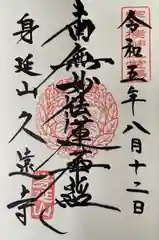 令和五年八月十二日
南無妙法蓮華経
身延山久遠寺